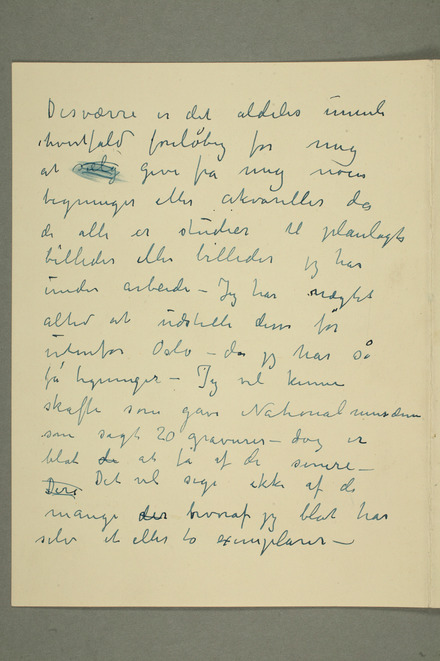 Desværre er det aldeles umuli
ihvertfald foreløbig for mig
at give fra mig noen
tegninger eller akvareller da
de alle er studier til planlagte
billeder eller billeder jeg har
under arbeide – Jeg har nægtet
altid at udstille dem før
utenfor Oslo – da jeg har så
få tegninger – Jeg vil kunne
skaffe som gave Nationalmuseum
som sagt 20 gravurer – dog er
blot de at få af de senere –
Ders Det vil sige ikke af de
mange der hvoraf jeg blot har
selv et eller to exemplarer –